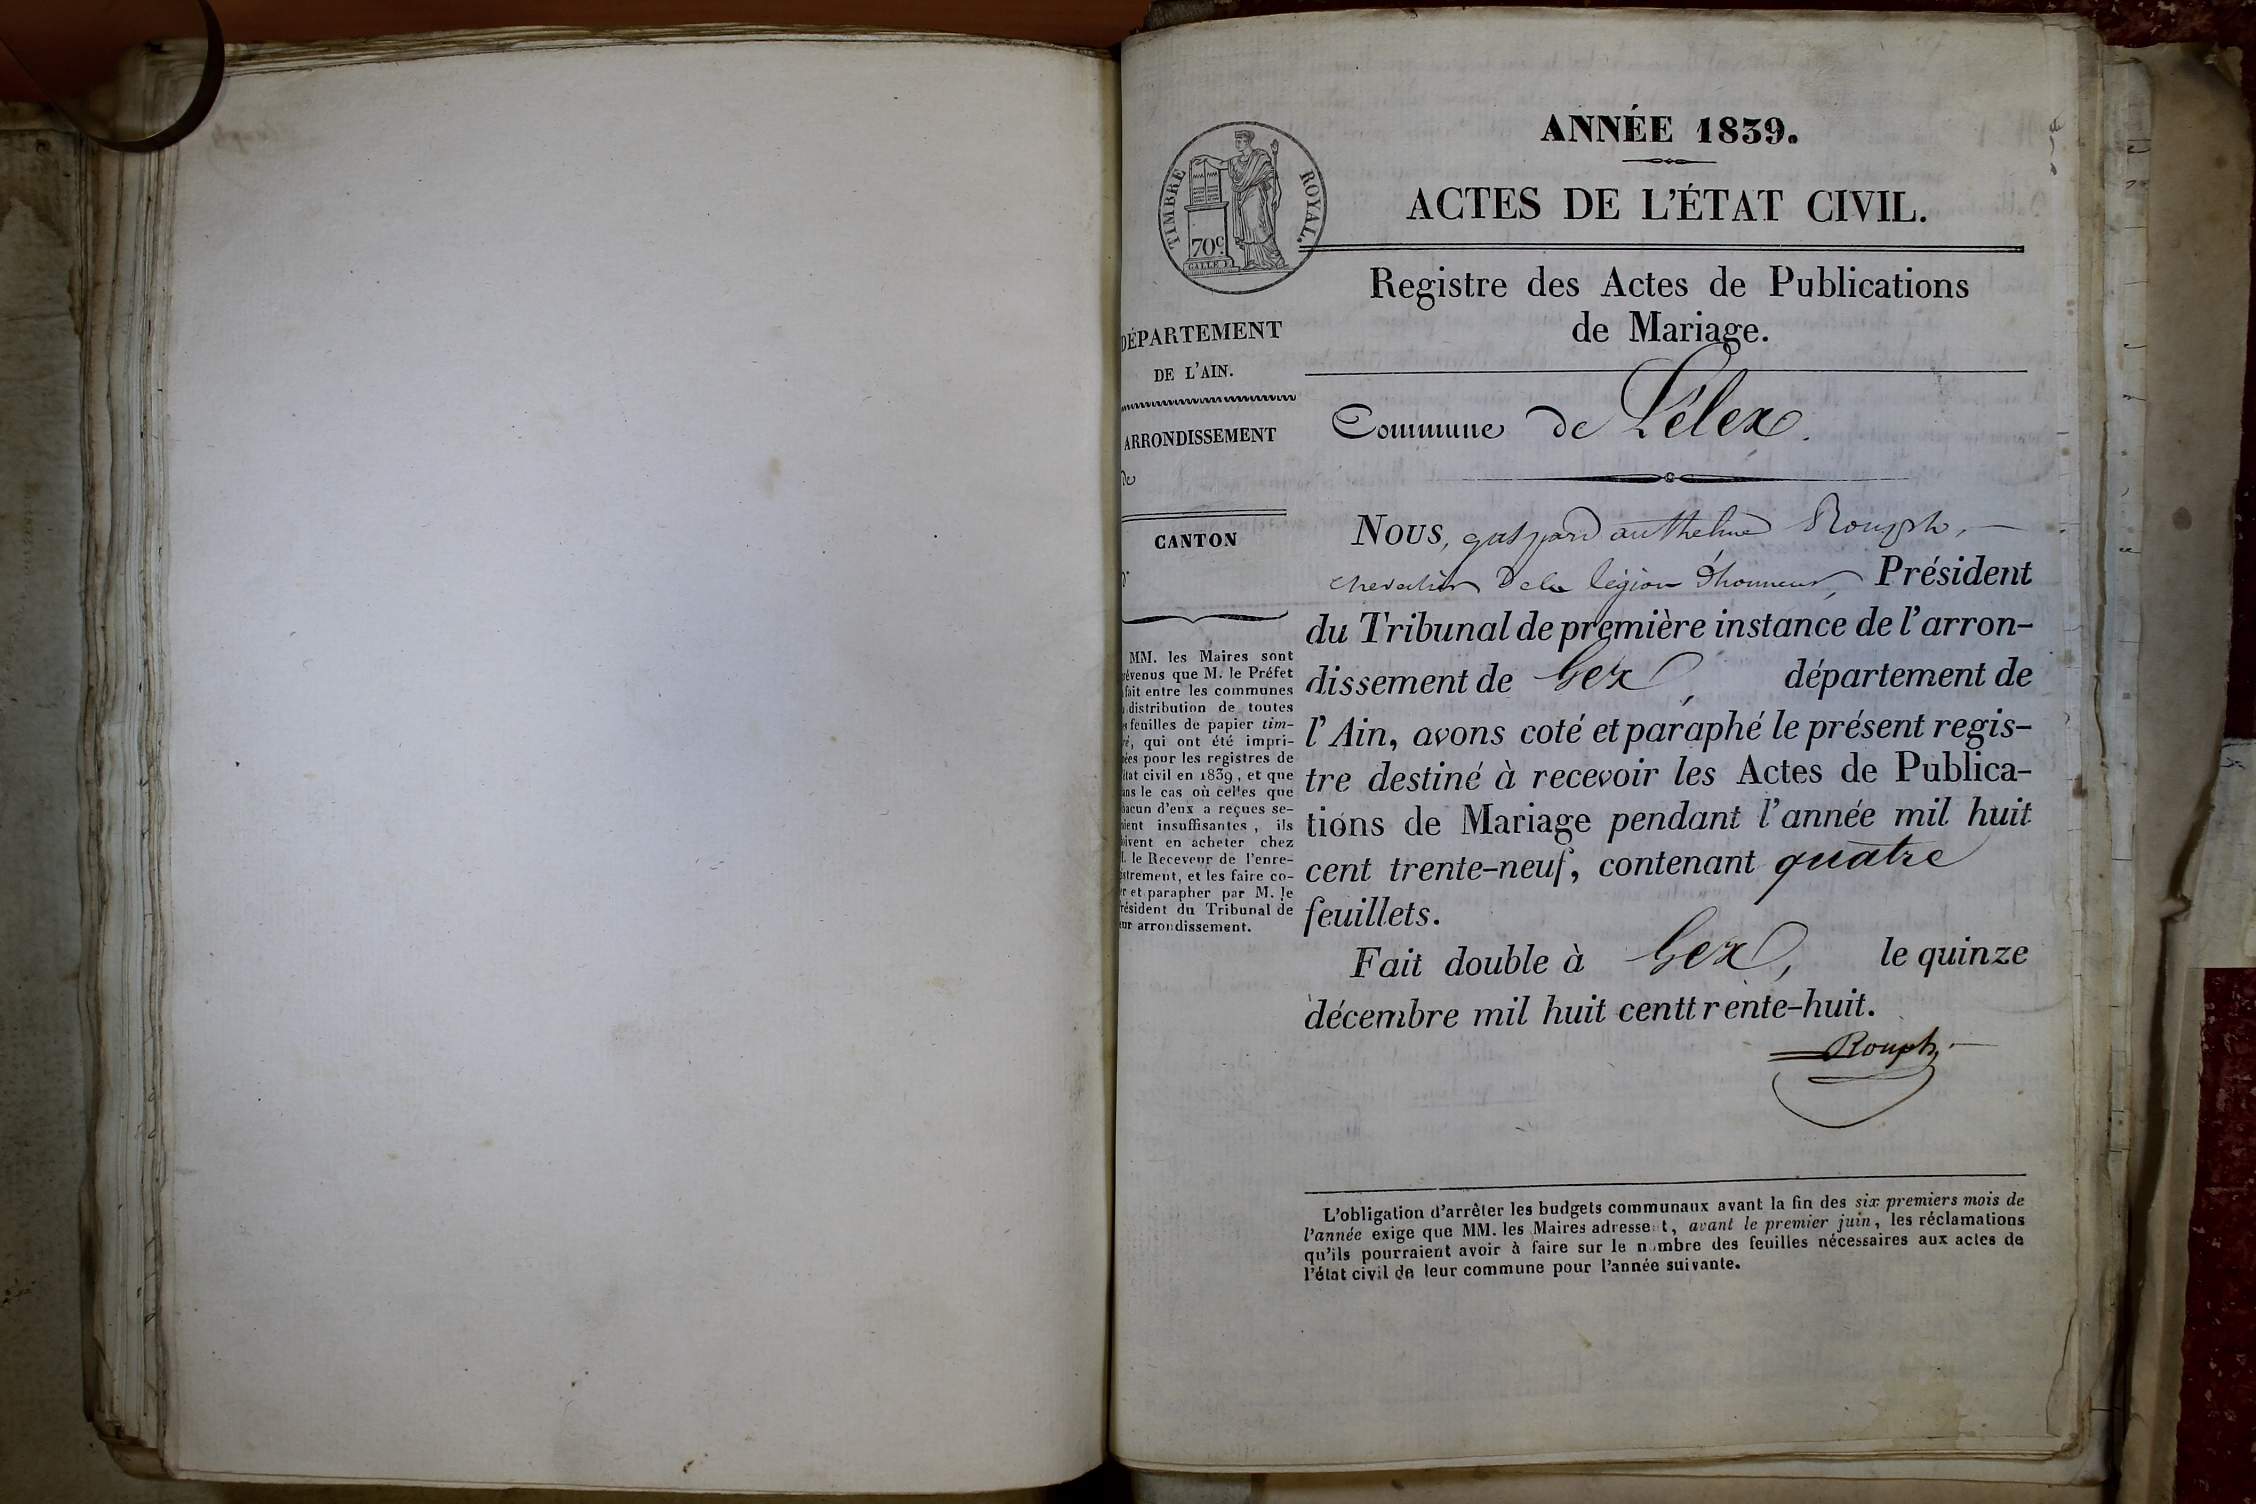 ANNÉE 1839.
ACTES DE L'ÉTAT CIVIL.
TIMBRE ROYAL.
70c.
GALLE F.
Registre des Actes de Publications
de Mariage.
DÉPARTEMENT
DE L'AIN.
ARRONDISSEMENT
de
CANTON
Commune de Lélex.
Nous, gaspard anthelme Rouph,
chevalier de la légion d'honneur, Président
du Tribunal de première instance de l'arron-
dissement de Gex, département de
l'Ain, avons coté et paraphé le présent regis-
tre destiné à recevoir les Actes de Publica-
tions de Mariage pendant l'année mil huit
cent trente-neuf, contenant quatre
feuillets.
Fait double à Gex, le quinze
décembre mil huit centtrente-huit.
Rouph
MM. les Maires sont
révenus que M. le Préfet
fait entre les communes
distribution de toutes
feuilles de papier tim-
ré, qui ont été impri-
mées pour les registres de
état civil en 1839, et que
ans le cas où celles que
hacun d'eux a reçues se-
aient insuffisantes, ils
oivent en acheter chez
. le Receveur de l'enre-
istrement, et les faire co-
r et parapher par M. le
résident du Tribunal de
eur arrondissement.
L'obligation d'arrêter les budgets communaux avant la fin des six premiers mois de
l'année exige que MM. les Maires adressent, avant le premier juin, les réclamations
qu'ils pourraient avoir à faire sur le nombre des feuilles nécessaires aux actes de
l'état civil de leur commune pour l'année suivante.